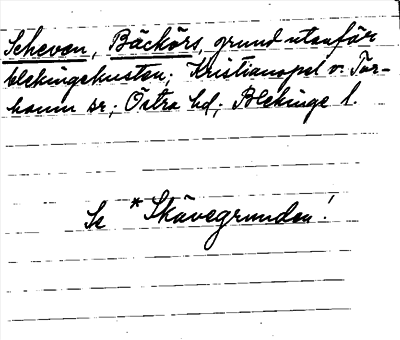 Scheven, Bäckörs, grund utanför
blekingekusten; Kristianopel o. Tor-
hamn sr; Östra hd; Blekinge l.
Se *Skävegrunden!